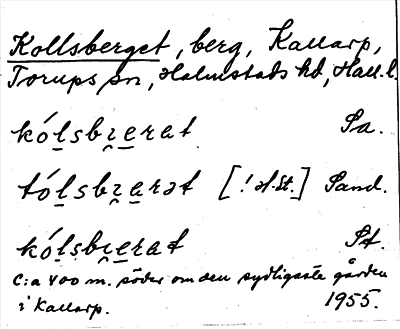 Kollsberget, berg, Kallarp,
Torups sn, Halmstads hd, Hall. l.
kó̲lsbɪ̯e̲rat Sa.
tó̲lsbɪ̯e̲rət [! H. St.] Sand.
kó̲lsbɪ̯e̲rat St.
C:a 400 m. söder om den sydligaste gården
i Kallarp. 1955.